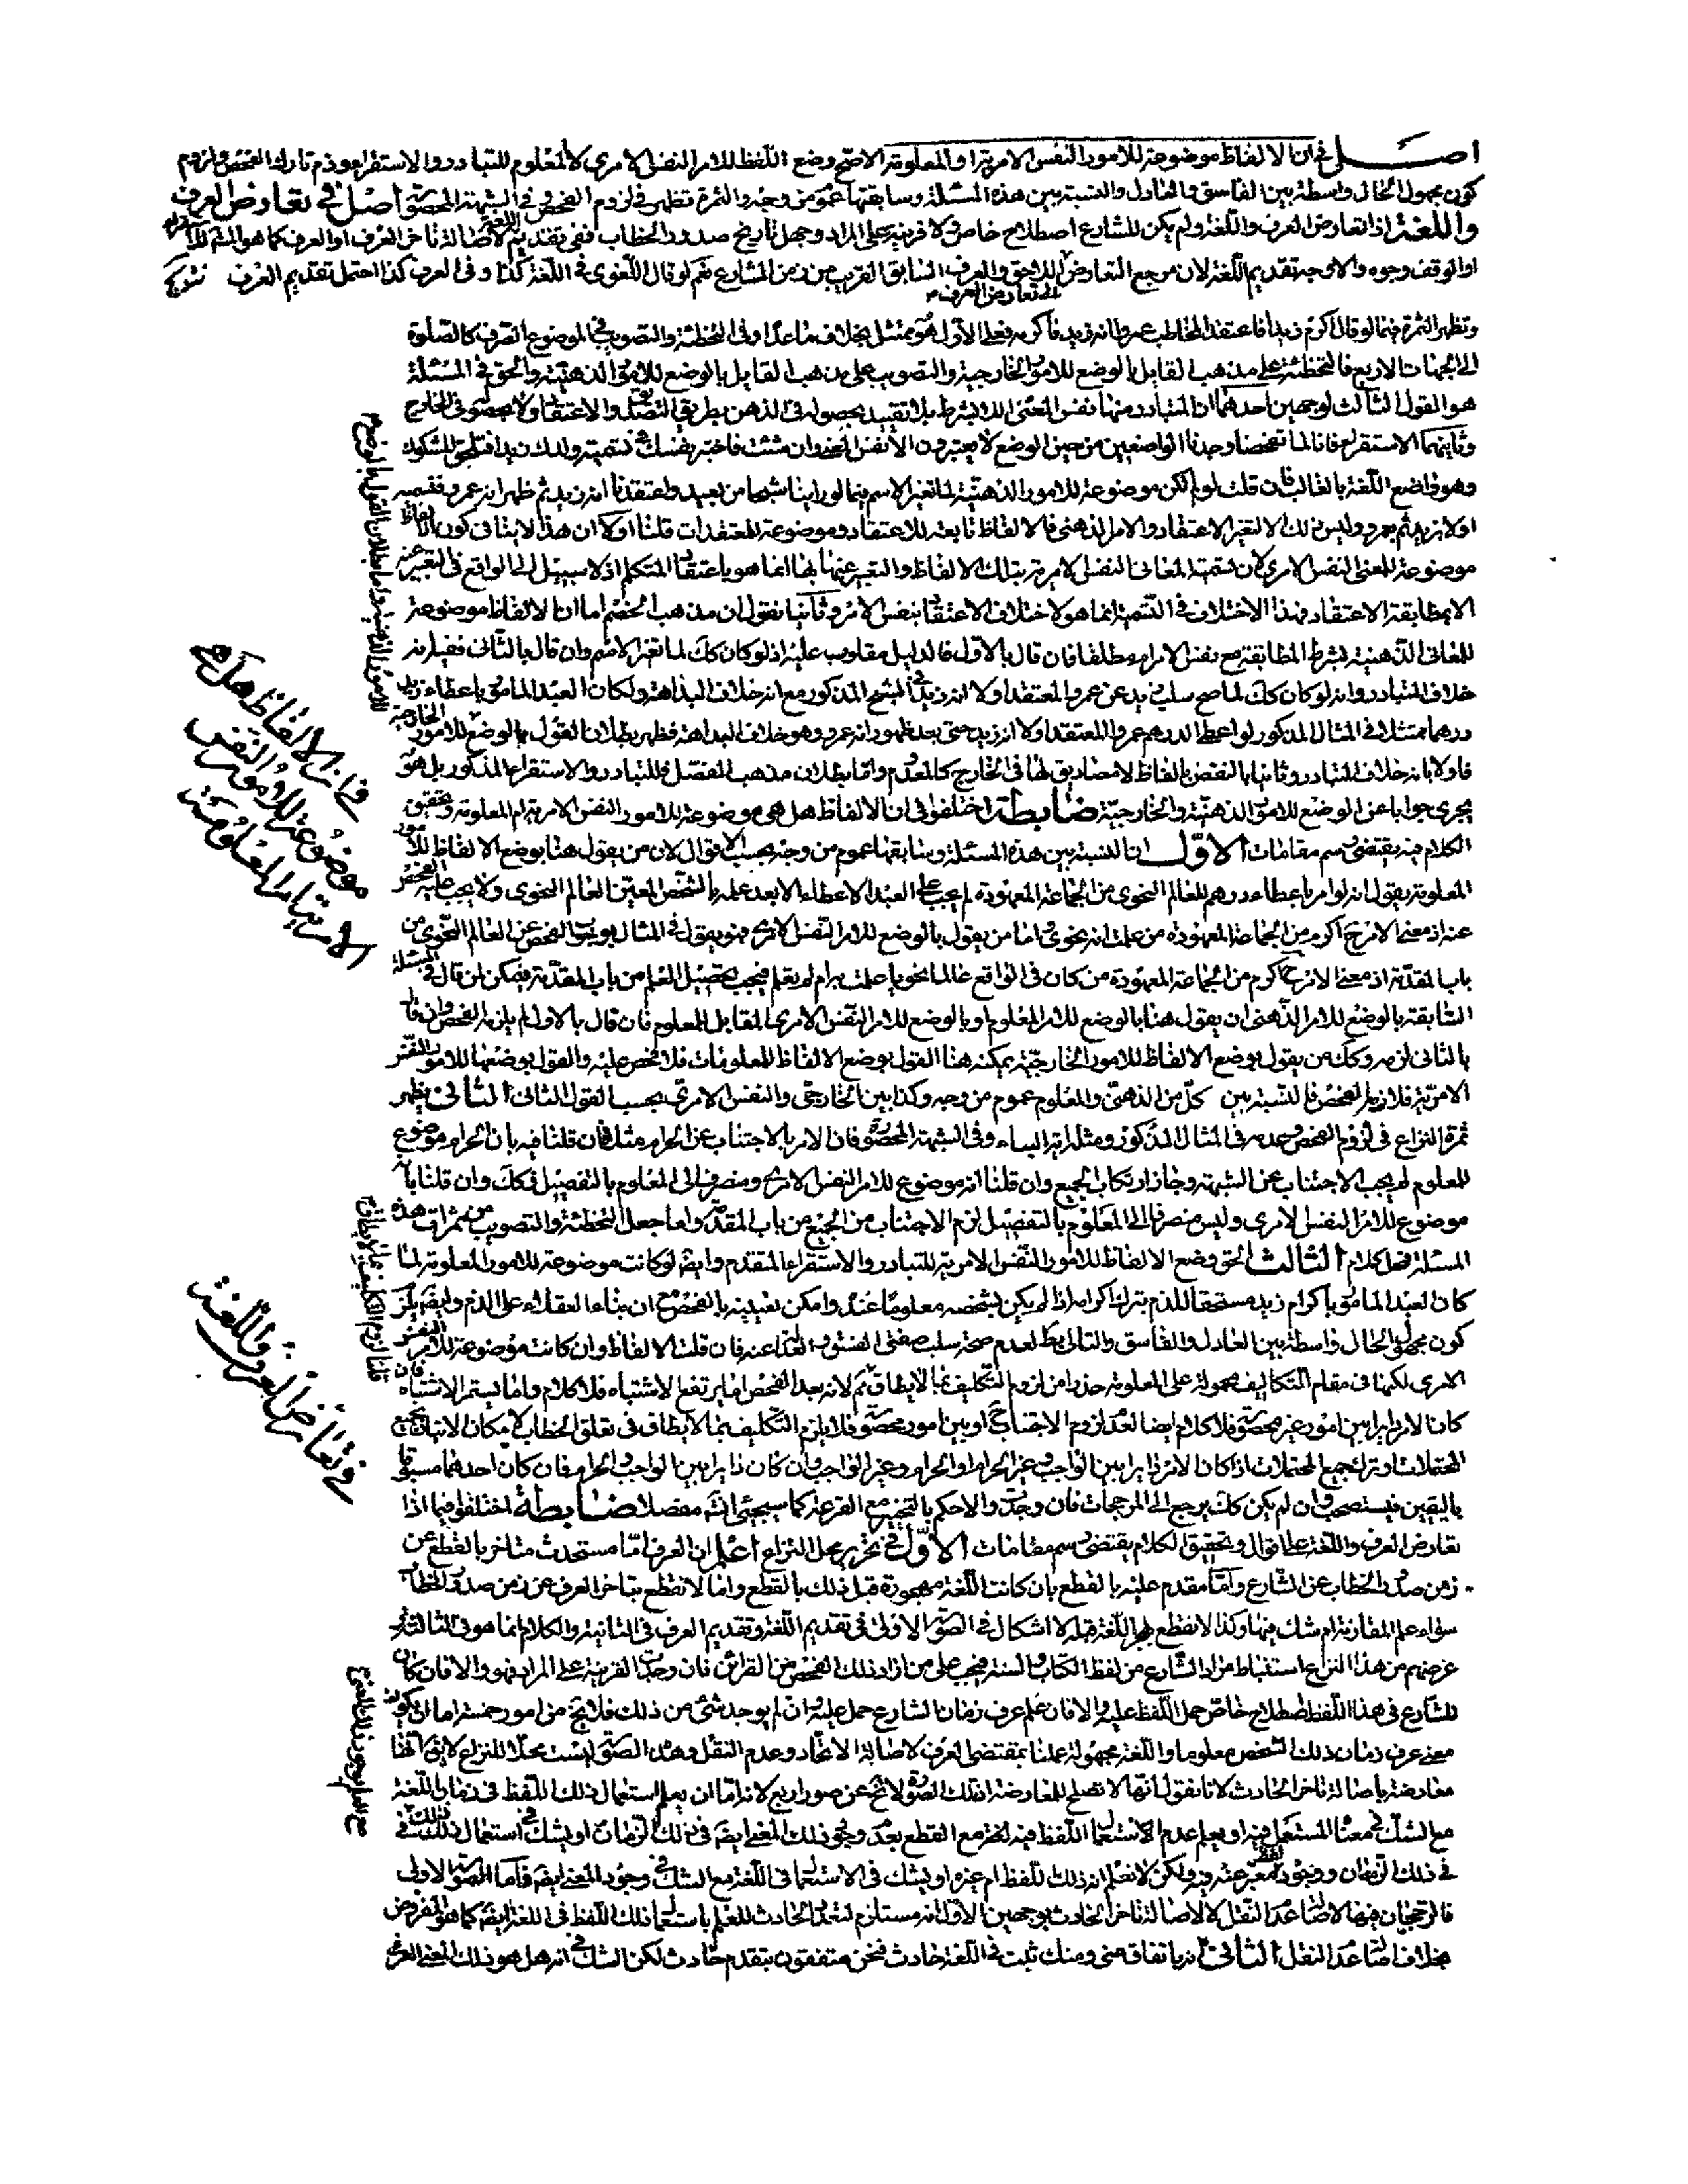 اصل في ان الالفاظ موضوعة للامور النفس الامرية او المعلومة الاصح وضع اللفظ للامر النفس الامرى لا المعلوم للتبادر والاستقراء وذم تارك الفحص ولزوم
كون مجهول الحال واسطة بين الفاسق والعادل والنسبة بين هذه المسئلة وسابقتها عموم من وجه والثمرة تظهر فى لزوم الفحص وفى الشبهة المحصورة اصل فى تعارض العرف
واللغة اذا تعارض العرف واللغة ولم يكن للشارع اصطلاح خاص ولا قرينة على المراد وجهل تاريخ صدور الخطاب ففى تقديم اللغة لاصالة تاخر العرف او العرف كما هو المشهر للاستقراء
او الوقف وجوه والاوجه تقديم اللغة لان مرجع التعارض الى تعارض العرف اللاحق والعرف السابق القريب من زمن الشارع نعم لو قال اللغوى فى اللغة كذا وفى العرف كذا احتمل تقديم العرف
وتظهر الثمرة فيما لو قال اكرم زيدا فاعتقد المخاطب عمروا انه زيد فاكرمه فعلى الاول هو ممتثل بخلاف ما عداه وفى التخطئة والتصويب فى الموضوع الصرف كالصلوة
الى الجهات الاربع فالتخطئة على مذهب القايل بالوضع للامور الخارجية والتصويب على مذهب القايل بالوضع للامور الذهنية والحق فى المسئلة
هو القول الثالث لوجهين احدهما ان المتبادر منها نفس المعنى اللابشرط بلا تقييد بحصوله فى الذهن بطريق التصور والاعتقاد ولا بحصوله فى الخارج
وثانيهما الاستقراء فانا لما تفحصنا وجدنا الواضعين من حين الوضع لا يعتبرون الا نفس المعنى وان شئت فاختبر نفسك فى تسمية ولدك زيدا فتلحق المشكوك
وهو واضع اللغة بالغالب فان قلت لو لم تكن موضوعة للامور الذهنية لما تغير الاسم فيما لو راينا شبحا من بعيد واعتقدنا انه زيد ثم ظهر انه عمرو فنسميه
اولا بزيد ثم بعمرو وليس ذلك الا لتغير الاعتقاد والامر الذهنى فالالفاظ تابعة للاعتقاد وموضوعة للمعتقدات قلنا اولا ان هذا لا ينافى كون الالفاظ
موضوعة للمعنى النفس الامرى لان تسمية المعانى النفس الامرية بتلك الالفاظ والتعبير عنها بها انما هو باعتقاد المتكلم اذ لا سبيل الى الواقع فى التعبير عنه
الا بمطابقة الاعتقاد فهذا الاختلاف فى التسمية انما هو لاختلاف الاعتقاد بنفس الامر وثانيا نقول ان مذهب الخصم اما ان الالفاظ موضوعة
للمعانى الذهنية بشرط المطابقة مع نفس الامر او مطلقا فان قال بالاول فالدليل مقلوب عليه اذ لو كان كك لما تغير الاسم وان قال بالثانى ففيه انه
خلاف المتبادر وانه لو كان كك لما صح سلب زيد عن عمرو المعتقد اولا انه زيد فى الشبح المذكور مع انه خلاف البداهة ولكان العبد المامور باعطاء زيد
درهما ممتثلا فى المثال المذكور لو اعطى الدرهم عمروا المعتقد اولا انه زيد حتى بعد ظهور انه عمرو وهو خلاف البداهة فظهر بطلان القول بالوضع للامور الخارجية
فاولا بانه خلاف المتبادر وثانيا بالنقض بالفاظ لا مصاديق لها فى الخارج كالمعدوم واما بطلان مذهب المفصل فللتبادر والاستقراء المذكور بل هو
يجرى جوابا عن الوضع للامور الذهنية والخارجية ضابطة اختلفوا فى ان الالفاظ هل هى موضوعة للامور النفس الامرية ام المعلومة وتحقيق
الكلام فيه يقتضى رسم مقامات الاول ان النسبة بين هذه المسئلة وسابقتها عموم من وجه بحسب الاقوال لان من يقول هنا بوضع الالفاظ للامور
المعلومة يقول انه لو امر باعطاء درهم للعالم النحوى من الجماعة المعهودة لم يجب على العبد الاعطاء الا بعد علمه بالشخص المعين العالم النحوى ولا يجب عليه الفحص
عنه اذ معنى الامر ح اكرم من الجماعة المعهودة من علمت انه نحوى اما من يقول بالوضع للامر النفس الامرى فهو يقول فى المثال بوجوب الفحص عن العالم النحوى من
باب المقدمة اذ معنى الامر ح اكرم من الجماعة المعهودة من كان فى الواقع عالما نحويا علمت به ام لم تعلم فيجب تحصيل العلم من باب المقدمة فيمكن لمن قال فى المسئلة
السابقة بالوضع للامر الذهنى ان يقول هنا بالوضع للامر المعلوم او بالوضع للامر النفس الامرى المقابل للمعلوم فان قال بالاول لم يلزمه الفحص وان قال
بالثانى لزمه وكك من يقول بوضع الالفاظ للامور الخارجية يمكنه هنا القول بوضع الالفاظ للمعلومات فلا فحص عليه والقول بوضعها للامور النفس
الامرية فلازمه الفحص فالنسبة بين كل من الذهنى والمعلوم عموم من وجه وكذا بين الخارجى والنفس الامرى بحسب القول الثانى الثانى يظهر
ثمرة النزاع فى لزوم الفحص وعدمه فى المثال المذكور ومثله اية النباء وفى الشبهة المحصورة فان الامر بالاجتناب عن الحرام مثلا فان قلنا فيه بان الحرام موضوع
للمعلوم لم يجب الاجتناب عن الشبهة وجاز ارتكاب الجميع وان قلنا انه موضوع للامر النفس الامرى ومنصرف الى المعلوم بالتفصيل فكك وان قلنا بانه
موضوع للامر النفس الامرى وليس منصرفا الى المعلوم بالتفصيل لزم الاجتناب من الجميع من باب المقدمة واما جعل التخطئة والتصويب من ثمرات هذه
المسئلة فمحل كلام الثالث الحق وضع الالفاظ للامور النفس الامرية للتبادر والاستقراء المتقدم وايضا لو كانت موضوعة للامور المعلومة لما
كان العبد المامور باكرام زيد مستحقا للذم بترك اكرامه اذا لم يكن بشخصه معلوما عنده وامكن تعيينه بالفحص مع ان بناء العقلاء على الذم وايضا يلزم
كون مجهول الحال واسطة بين العادل والفاسق والتالى بط لعدم صحة سلب صفتى الفسق والعدالة عنه فان قلت الالفاظ وان كانت موضوعة للامر النفس
الامرى لكنها فى مقام التكاليف محمولة على المعلومة حذرا من لزوم التكليف بما لا يطاق لانه بعد الفحص اما يرتفع الاشتباه فلا كلام واما يستمر الاشتباه فان
كان الامر دايرا بين امور غير محصورة فلا كلام ايضا لعدم لزوم الاجتناب ح او بين امور محصورة فلا يلزم التكليف بما لا يطاق فى تعلق الخطاب لامكان الاتيان بجميع
المحتملات او ترك جميع المحتملات اذا كان الامر دايرا بين الواجب وغير الحرام او الحرام وغير الواجب وان كان دايرا بين الواجب والحرام فان كان احدهما مسبوقا
باليقين فيستصحب وان لم يكن كك يرجع الى المرجحات فان وجدت والا حكم بالتخيير مع القرعة كما سيجئ انشاء الله مفصلا ضابطة اختلفوا فيما اذا
تعارض العرف واللغة على اقوال وتحقيق الكلام يقتضى رسم مقامات الاول فى تحرير محل النزاع اعلم ان العرف اما مستحدث متاخر بالقطع عن
زمن صدور الخطاب عن الشارع واما مقدم عليه بالقطع بان كانت اللغة مهجورة قبل ذلك بالقطع واما لا نقطع بتاخر العرف عن زمن صدور الخطاب
سواء علم المقارنة ام شك فيها وكذا لا نقطع بهجر اللغة قبله لا اشكال فى الصورة الاولى فى تقديم اللغة وتقديم العرف فى الثانية والكلام انما هو فى الثالثة
غرضهم من هذا النزاع استنباط مراد الشارع من لفظ الكتاب والسنة فيجب على من اراد ذلك الفحص من القرائن فان وجدت القرينة على المراد فهو والا فان كان
للشارع فى هذا اللفظ اصطلاح خاص حمل اللفظ عليه والا فان علم عرف زمان الشارع حمل عليه وان لم يوجد شئ من ذلك فلا يخ من امور خمسة اما ان يكون
معنى عرف زمان ذلك الشخص معلوما واللغة مجهولة عملنا بمقتضى العرف لاصالة الاتحاد وعدم النقل وهذه الصورة ليست محلا للنزاع لا يقال انها
معارضة باصالة تاخر الحادث لانا نقول انها لا تصلح للمعارضة اذ تلك الصورة لا تخ عن صور اربع لانه اما ان يعلم استعمال ذلك اللفظ فى زمان اللغة
مع الشك فى معنى المستعمل فيه او يعلم عدم الاستعمال اللفظ فيه مع القطع بعدم وجود ذلك المعنى ايضا فى ذلك الزمان او يشك فى استعمال ذلك
فى ذلك الزمان ووجود معبر عنه فيه ولكن لا نعلم انه ذلك اللفظ ام غيره او يشك فى الاستعمال فى اللغة مع الشك فى وجود المعنى ايضا فاما الصورة الاولى
فالرجحان فيها لاصالة عدم النقل لا لاصالة تاخر الحادث بوجهين الاول انه مستلزم لتعدد الحادث للعلم باستعمال ذلك اللفظ فى اللغة ايضا كما هو المفروض
بخلاف اصالة عدم النقل الثانى انه باتفاق منى ومنك ثبت فى اللغة حادث فنحن متفقون بتقدم حادث لكن الشك فى انه هل هو ذلك المعنى العرفى
فى ان الالفاظ هل هى
موضوعة للامور النفس
الامرية ام المعلومة
فى تعارض العرف واللغة